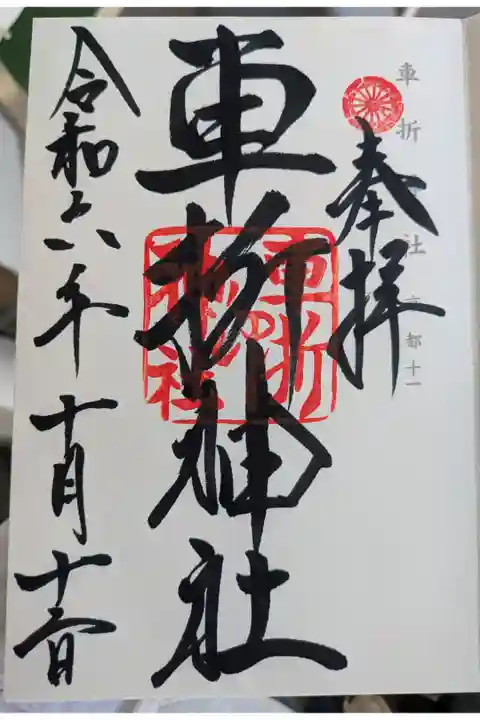 車折神社 京都十一
奉拝
車折神社
車折
神社
令和六年十月十三日